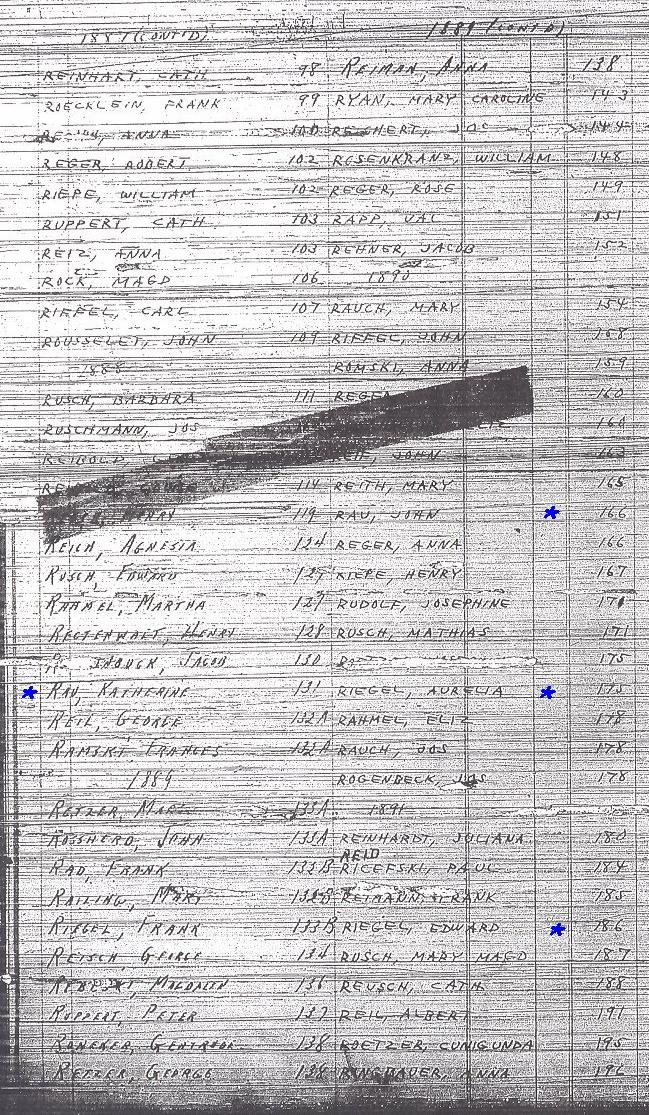 1887 (CONT'D)
REINHART, CATH 98
ROECKLEIN, FRANK 99
ANNA 100
REGER, ROBERT 102
RIEPE, WILLIAM 102
RUPPERT, CATH 103
REIZ, ANNA 103
ROCK, MAGD 106
RIEFEL, CARL 107
ROUSSELET, JOHN 109
1888
RUSCH, BARBARA 111
RUSCHMANN, JOS
REIBOLD
114
119
REICH, AGNESIA 124
RUSCH, EDWARD
RAHMEL, MARTHA 127
RECTENWALT, HENRY 128
JACOB 130
* RAU, KATHERINE 131
REIL, GEORGE 132A
RAMSKI FRANCES 132A
1889
RETZER, 133A
ROSSHERO, JOHN 133A
RAD, FRANK 133B
RAILING, MARY
RIEGEL, FRANK 133B
REISCH, GEORGE 134
MAGDALEN 136
RUPPERT, PETER 137
GERTRUDE 138
RETZER, GEORGE 138
1889 (CONT'D)
REIMAN, ANNA 138
RYAN, MARY CAROLINE 143
REICHERT, 144
ROSENKRANZ, WILLIAM 148
REGER, ROSE 149
RAPP, VAL 151
REHNER, JACOB 152
1890
RAUCH, MARY 154
RIFFEL, JOHN 158
ROMSKI, ANNA 159
REGER 160
160
JOHN 163
REITH, MARY 165
RAU, JOHN * 166
REGER, ANNA 166
RIEPE, HENRY 167
RUDOLF, JOSEPHINE 171
RUSCH, MATHIAS 171
175
RIEGEL, AURELIA * 175
RAHMEL, ELIZ 178
RAUCH, JOS 178
ROGENBECK, JOS 178
1891
REINHARDT, JULIANA 180
REID
RICEFSKI, PAUL 184
REIMANN, FRANK 185
RIEGEL, EDWARD * 186
RUSCH, MARY MAGD 187
REUSCH, CATH 188
REIL, ALBERT 191
ROETZER, CUNIGUNDA 195
RINGBAUER, ANNA 196